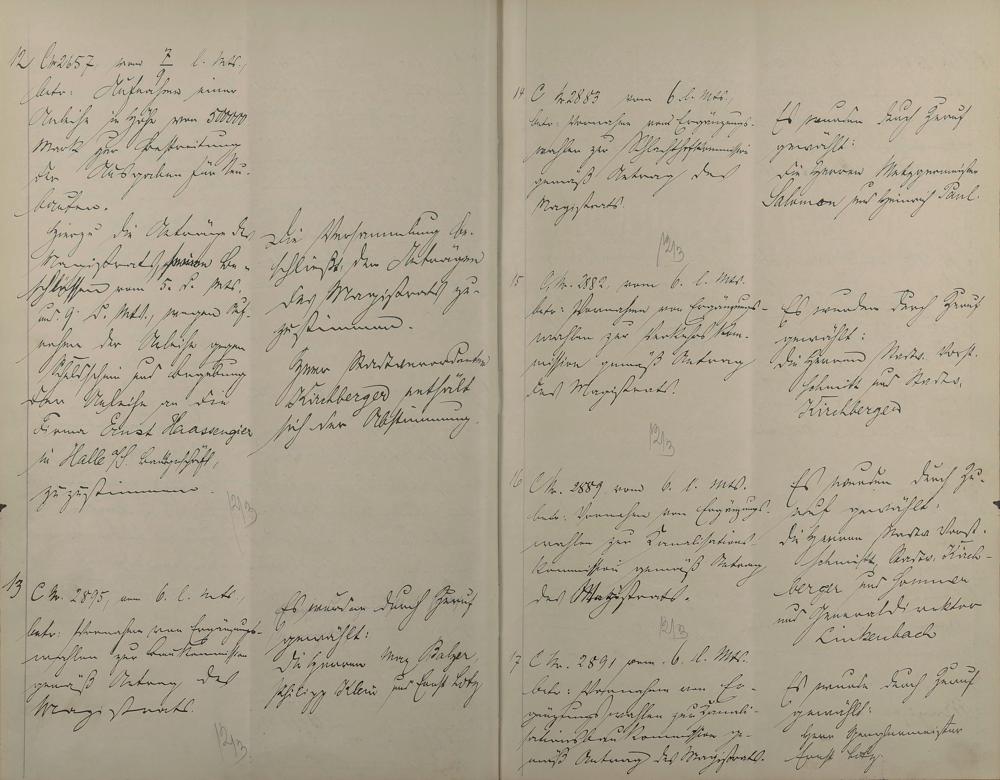 12
C Nr 2657 vom 7/9 l. Mts.,
betr: Aufnahme einer
Anleihe in Höhe von 500000
Mark zur Bestreitung
der Ausgaben für Neu-
bauten.
Hierzu die Anträge des
Magistrats, Be-
schlüssen vom 5. d. Mts.
und 9. d. Mts., wegen Auf-
nahme der Anleihe gegen
Schuldschein und Begebung
der Anleihe an die
Firma Ernst Haassengier
in Halle a/S. Bankgeschäft,
zuzustimmen.
Die Versammlung be-
schließt, den Anträgen
des Magistrats zu-
zustimmen.
Herr Stadtverordneter
Kirchberger enthält
sich der Abstimmung.
13
C Nr. 2895, vom 6. l. Mts.,
betr: Vornahme von Ergänzungs-
wahlen zur Baukommission
gemäß Antrag des
Magistrats.
Es wurden durch Zuruf
gewählt:
die Herren Max Balzer,
Philipp Klein und Ernst Lotz
14
C Nr 2883 vom 6. l. Mts.,
betr: Vornahme von Ergänzungs-
wahlen zur Schlachthofkommission
gemäß Antrag des
Magistrats.
Es wurden durch Zuruf
gewählt:
die Herren Metzgermeister
Salomon und Heinrich Paul.
15
C. Nr. 2882, vom 6. l. Mts.
betr: Vornahme von Ergänzungs-
wahlen zur Verkehrs Kom-
mission gemäß Antrag
des Magistrats.
Es wurden durch Zuruf
gewählt:
die Herren Stadtv. Vorst.
Schmitt und Stadtv.
Kirchberger
16
C Nr. 2889 vom 6. l. Mts.
betr: Vornahme von Ergänzungs-
wahlen zur Kanalisations-
Kommission gemäß Antrag
des Magistrats.
Es wurden durch Zu-
ruf gewählt:
die Herren Stadtv. Vorst.
Schmitt, Stadtv. Kirch-
berger und Sommer
und Generaldirektor
Linkenbach
17
C Nr. 2891 vom 6. l. Mts.
betr: Vornahme von Er-
gänzungswahlen zur Kanali-
sationsbau Kommission ge-
mäß Antrag des Magistrats.
Es wurde durch Zuruf
gewählt:
Herr
Ernst Lotz